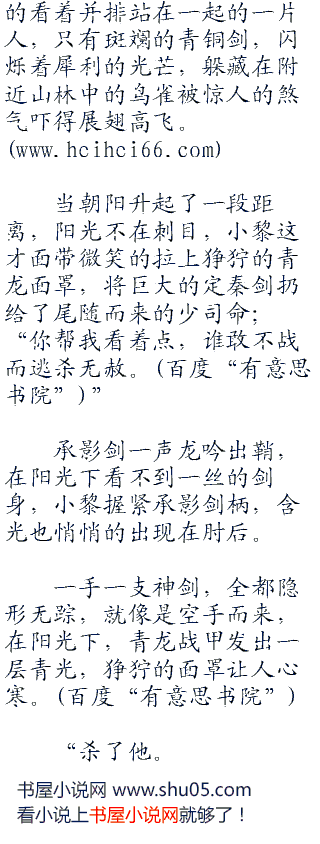 的看着并排站在一起的一片
人，只有斑斓的青铜剑，闪
烁着犀利的光芒，躲藏在附
近山林中的鸟雀被惊人的煞
气吓得展翅高飞。
(www.hcihci66.com)
当朝阳升起了一段距
离，阳光不在刺目，小黎这
才面带微笑的拉上狰狞的青
龙面罩，将巨大的定秦剑扔
给了尾随而来的少司命；
“你帮我看着点，谁敢不战
而逃杀无赦。(百度“有意思
书院”)”
承影剑一声龙吟出鞘，
在阳光下看不到一丝的剑
身，小黎握紧承影剑柄，含
光也悄悄的出现在肘后。
一手一支神剑，全都隐
形无踪，就像是空手而来，
在阳光下，青龙战甲发出一
层青光，狰狞的面罩让人心
寒。(百度“有意思书院”)
“杀了他。
书屋小说网 www.shu05.com
看小说上书屋小说网就够了！